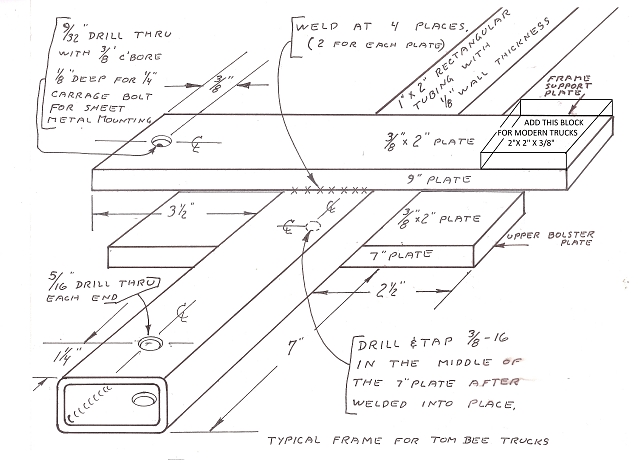 9/32" DRILL THRU
WITH 3/8' C'BORE
1/8" DEEP FOR 1/4"
CARRAGE BOLT
FOR SHEET
METAL MOUNTING
3/8"
℄
WELD AT 4 PLACES.
(2 FOR EACH PLATE)
1" x 2" RECTANGULAR
TUBING WITH
1/8" WALL THICKNESS
FRAME
SUPPORT
PLATE
ADD THIS BLOCK
FOR MODERN TRUCKS
2"X 2" X 3/8"
3/8" x 2" PLATE
9" PLATE
3 1/2"
x x x x x x x
℄
℄
3/8" x 2" PLATE
UPPER BOLSTER
PLATE
7" PLATE
2 1/2"
5/16" DRILL THRU
EACH END
℄
1 1/4"
7"
DRILL & TAP 3/8-16
IN THE MIDDLE OF
THE 7" PLATE AFTER
WELDED INTO PLACE.
TYPICAL FRAME FOR TOM BEE TRUCKS